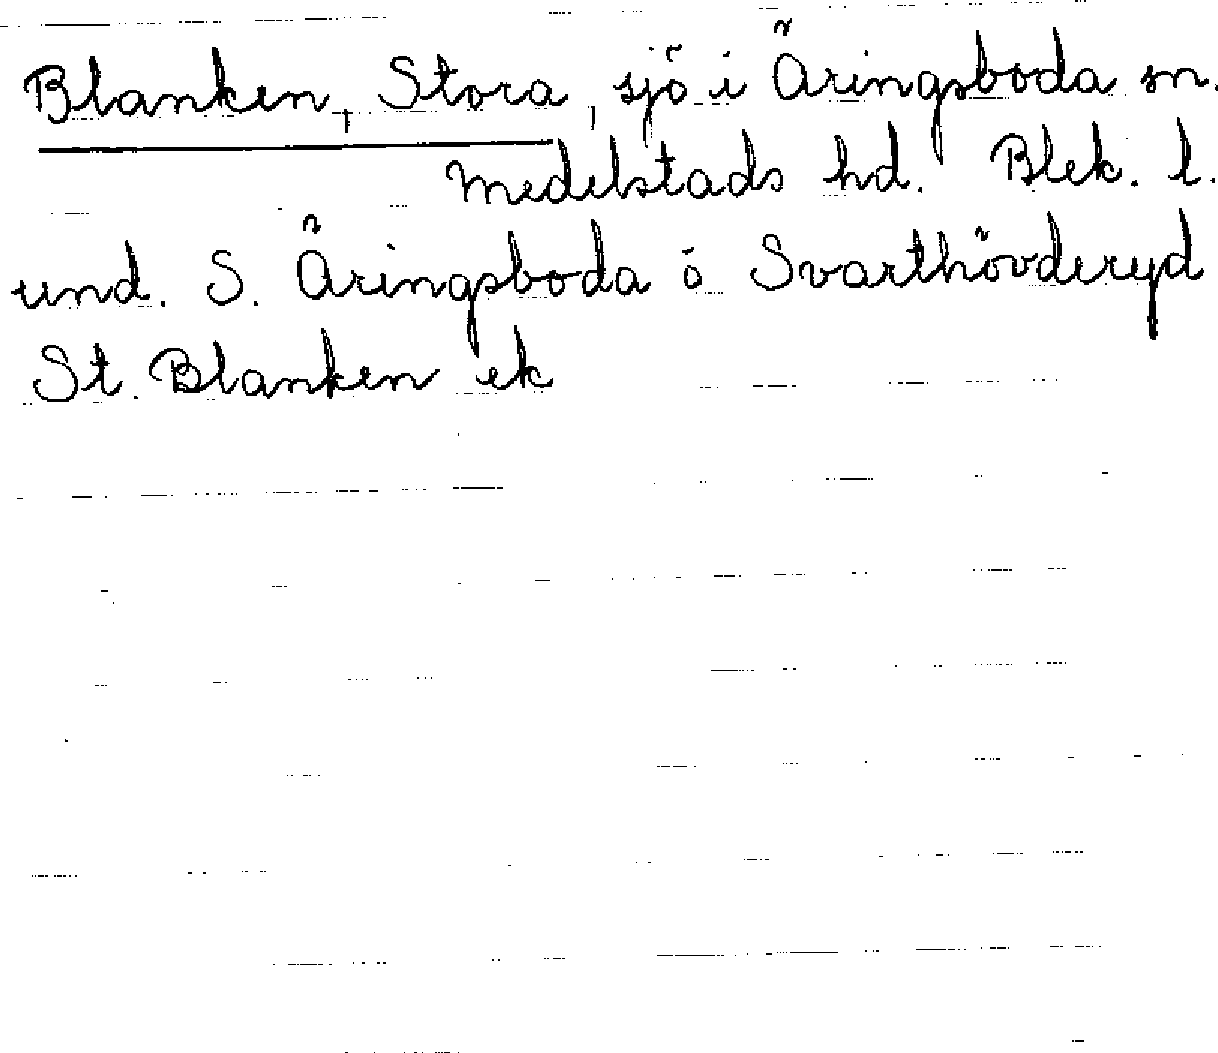 Blanken, Stora, sjö i Öringsboda sn.
Medelstads hd. Blek. l.
und. S. Öringsboda ö Svarthövderyd
St. Blanken ek